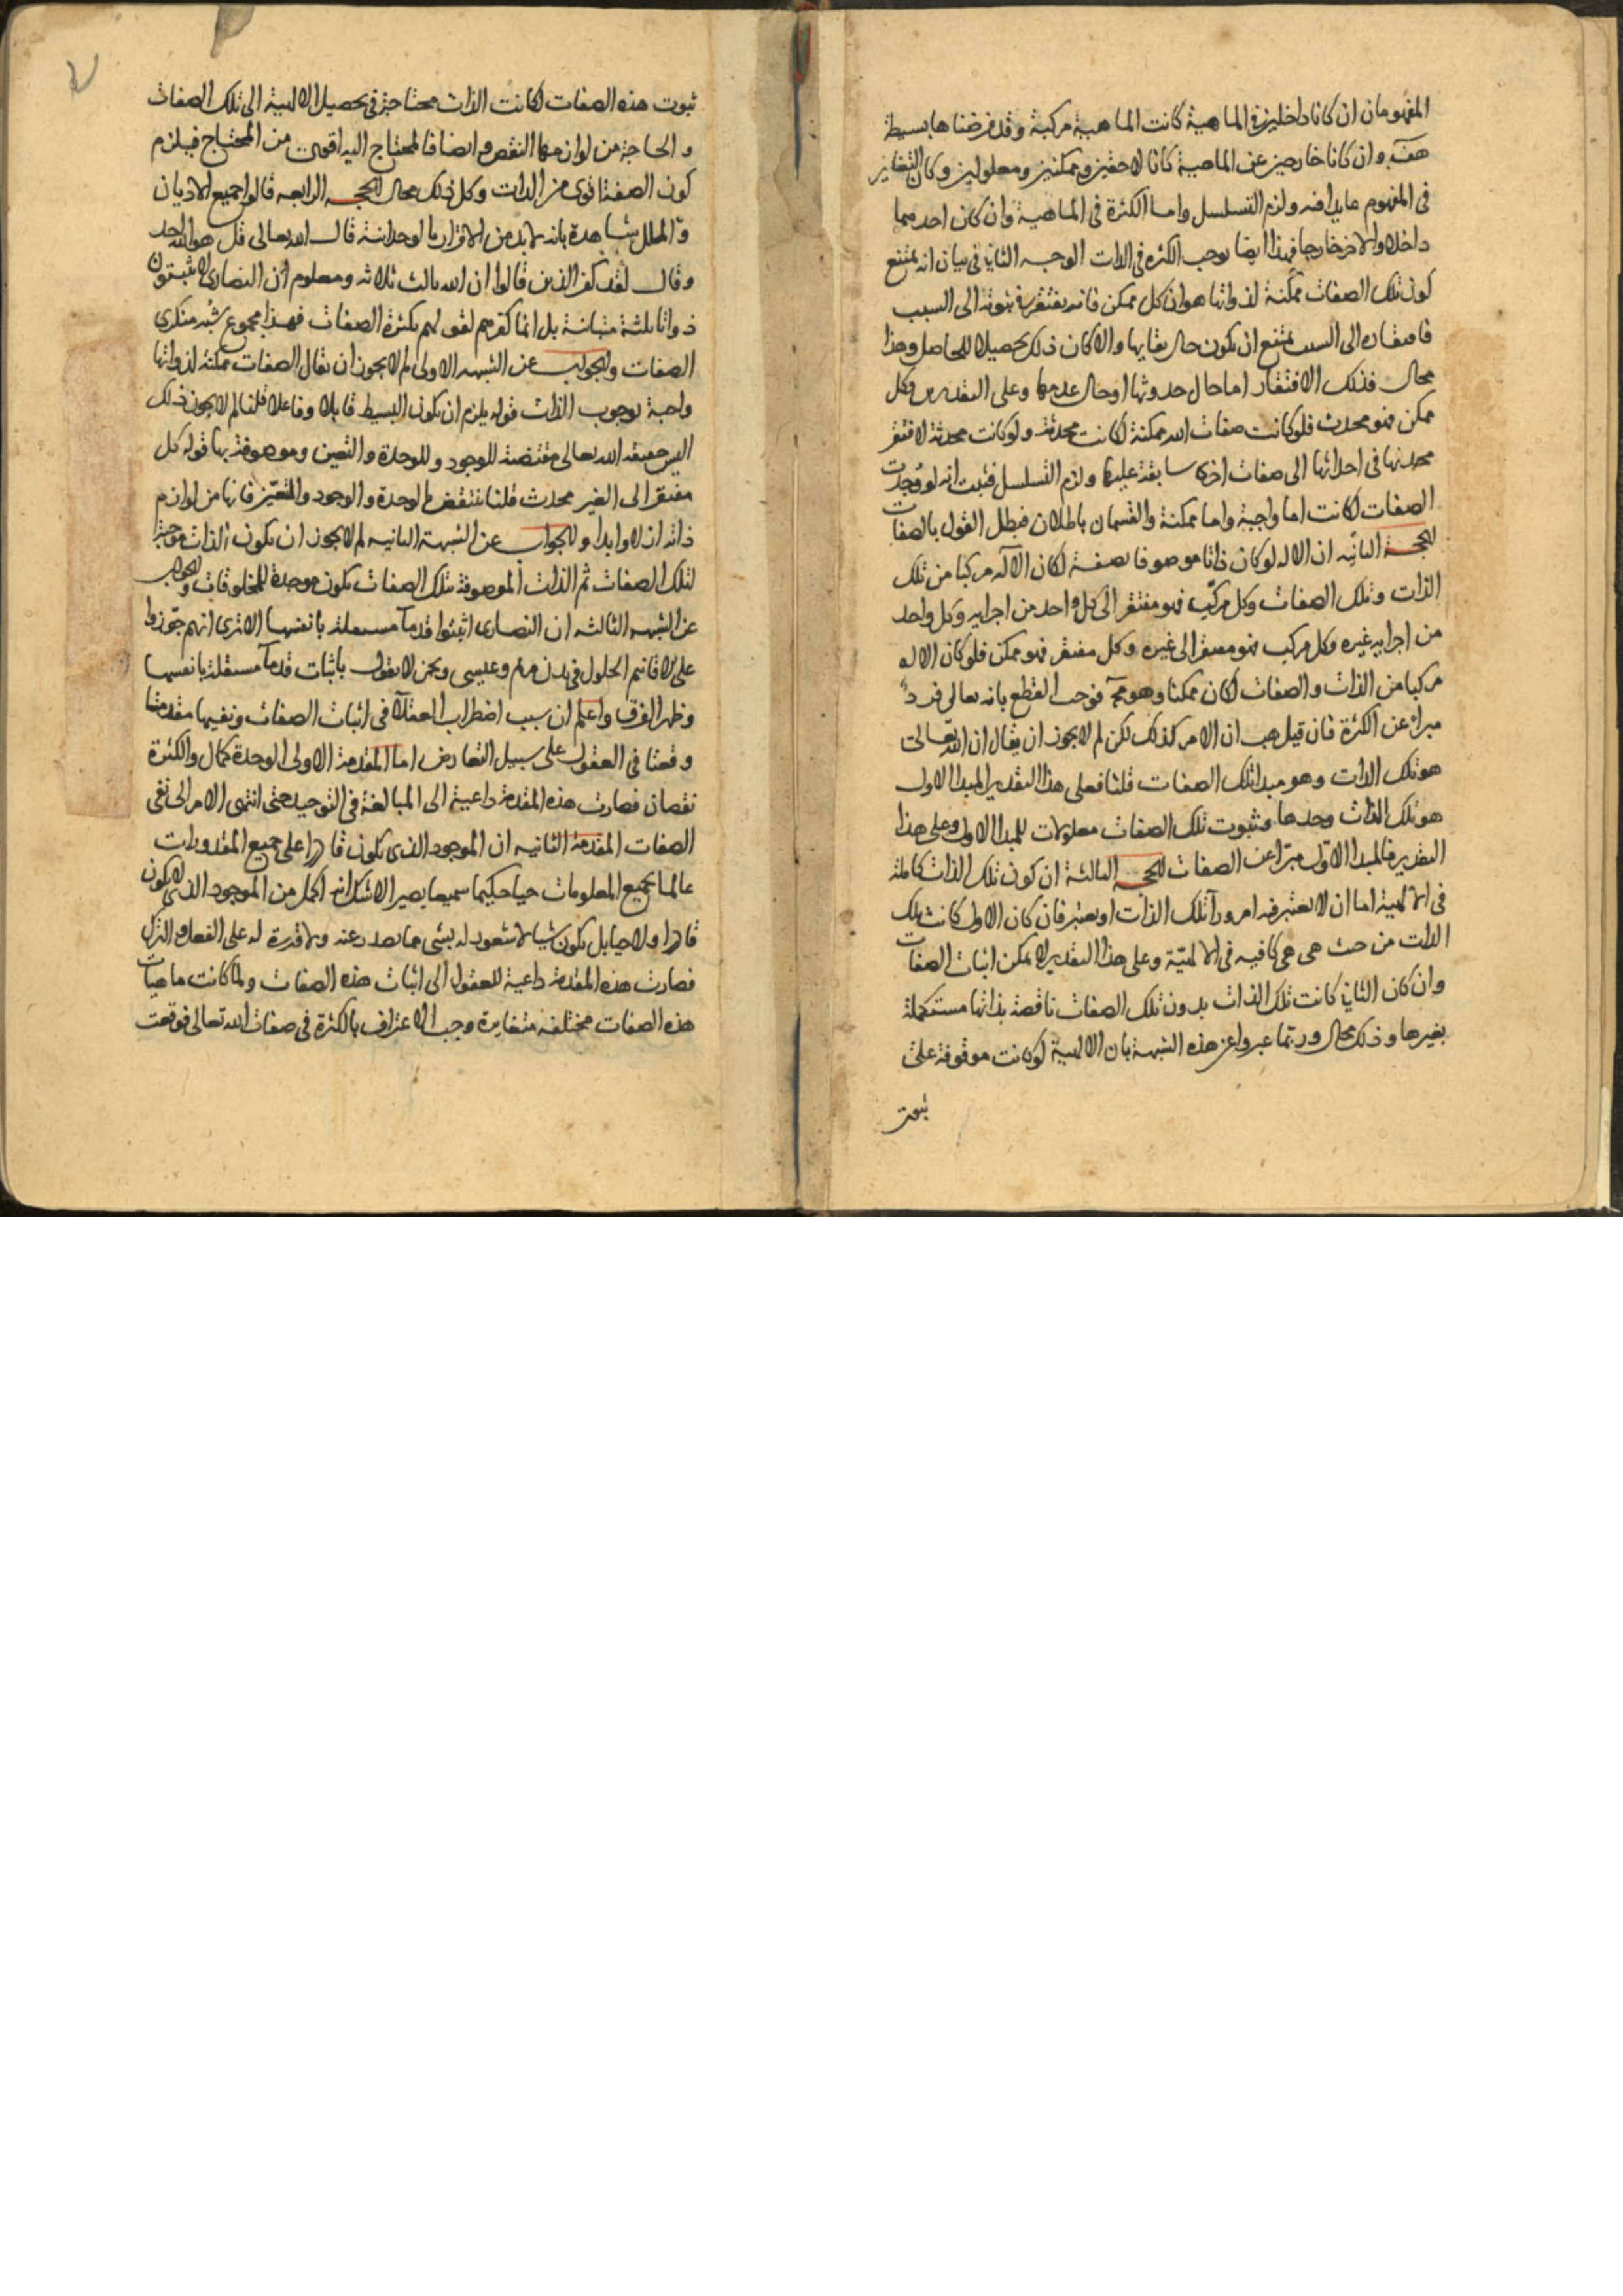 المفهومان ان كانا داخلين في الماهية كانت الماهية مركبة وقد فرضناها بسيطة
هف وان كانا خارجين عن الماهية كانا لاحقين وممكنين ومعلولين وكان التغاير
في المفهوم عايدا فيه ولزم التسلسل واما الكثرة في الماهية وان كان احدهما
داخلا والاخر خارجا فهذا ايضا يوجب الكثرة في الذات الوجه الثاني في بيان انه يمتنع
كون تلك الصفات ممكنة لذواتها هو ان كل ممكن فانه يفتقر في ثبوته الى السبب
فافتقاره الى السبب يمتنع ان يكون حال بقايها والا كان ذلك تحصيلا للحاصل وهذا
محال فذلك الافتقار اما حال حدوثها او حال عدمها وعلى التقديرين وكل
ممكن فهو محدث فلو كانت صفات الله ممكنة لكانت محدثة ولو كانت محدثة لافتقر
محدثها في احداثها الى صفات اخر سابقة عليها ولزم التسلسل فثبت انه لو وجدت
الصفات لكانت اما واجبة واما ممكنة والقسمان باطلان فبطل القول بالصفات
الحجة الثانيه ان الاله لو كان ذاتا موصوفا بصفة لكان الآله مركبا من تلك
الذات وتلك الصفات وكل مركب فهو مفتقر الى كل واحد من اجزايه وكل واحد
من اجزايه غيره وكل مركب فهو مفتقر الى غيره وكل مفتقر فهو ممكن فلو كان الاله
مركبا من الذات والصفات لكان ممكنا وهو مح فوجب القطع بانه تعالى فرد
مبرأ عن الكثرة فان قيل هب ان الامر كذلك لكن لم لا يجوز ان يقال ان الله تعالى
هو تلك الذات وهو مبدا لتلك الصفات قلنا فعلى هذا التقدير المبدا الاول
هو تلك الذات وحدها وثبوت تلك الصفات معلولات للمبدا الاول وعلى هذا
التقدير فالمبدا الاول مبرا عن الصفات الحجة الثالثة ان كون تلك الذات كاملة
في الالهية اما ان لا يعتبر فيه امر وراء تلك الذات او يعتبر فان كان الاول كانت تلك
الذات من حيث هي هي كافيه في الالهيّة وعلى هذا التقدير لا يمكن اثبات الصفات
وان كان الثاني كانت تلك الذات بدون تلك الصفات ناقصة بذاتها مستكملة
بغيرها وذلك محال وربما عبروا عن هذه الشبهة بان الالهية لو كانت موقوفة على
ثبوت
ثبوت هذه الصفات لكانت الذات محتاجة في تحصيل الالهية الى تلك الصفات
والحاجة من لوازمها النقص وايضا فالمحتاج اليه اقوى من المحتاج فيلزم
كون الصفة اقوى من الذات وكل ذلك محال الحجة الرابعه قالوا جميع الاديان
والملل شاهدة بانه لابد من الاقرار بالوحدانية قال الله تعالى قل هو الله احد
وقال لقد كفر الذين قالوا ان الله ثالث ثلاثه ومعلوم ان النصارى لا يثبتون
ذواتا ثلثة متباينة بل انما كفرهم لقولهم بكثرة الصفات فهذا مجموع شبه منكري
الصفات والجواب عن الشبهه الاولى لم لا يجوز ان يقال الصفات ممكنة لذواتها
واجبة بوجوب الذات قوله يلزم ان يكون البسيط قابلا وفاعلا قلنا لم لا يجوز ذلك
اليس حقيقه الله تعالى مقتضية للوجود وللوحدة والتعين وموصوفة بها قوله كل
مفتقر الى الغير محدث قلنا ينتقض بالوحدة والوجود والتعيّن فانها من لوازم
ذاته ازلا وابدا والجواب عن الشبهة الثانيه لم لا يجوز ان يكون الذات موجبة
لتلك الصفات ثم الذات الموصوفة بتلك الصفات يكون موجدة للمخلوقات والجواب
عن الشبهه الثالثه ان النصارى اثبتوا قدمآ مستقلة بانفسها الا ترى انهم جوّزوا
على الاقانيم الحلول في بدن مريم وعيسى ونحن لا نقول باثبات قدمآ مستقلة بانفسها
وظهر الفرق واعلم ان سبب اضطراب العقلآ في اثبات الصفات ونفيها مقدمتا
وقعتا في العقول على سبيل التعارض اما المقدمة الاولى الوحدة كمال والكثرة
نقصان فصارت هذه المقدمة داعية الى المبالغة في التوحيد حتى انتهى الامر الى نفى
الصفات المقدمة الثانيه ان الموجود الذى يكون قادرا على جميع المقدورات
عالما بجميع المعلومات حيا حكيما سميعا بصيرا لا شك انه اكمل من الموجود الذى لا يكون
قادرا ولا حيا بل يكون شيا لا شعور له بشى مما يصدر عنه ولا قدرة له على الفعل والترك
فصارت هذه المقدمة داعية للعقول الى اثبات هذه الصفات ولما كانت ماهيات
هذه الصفات مختلفه متغايرة وجب الاعتراف بالكثرة في صفات الله تعالى فوقعت